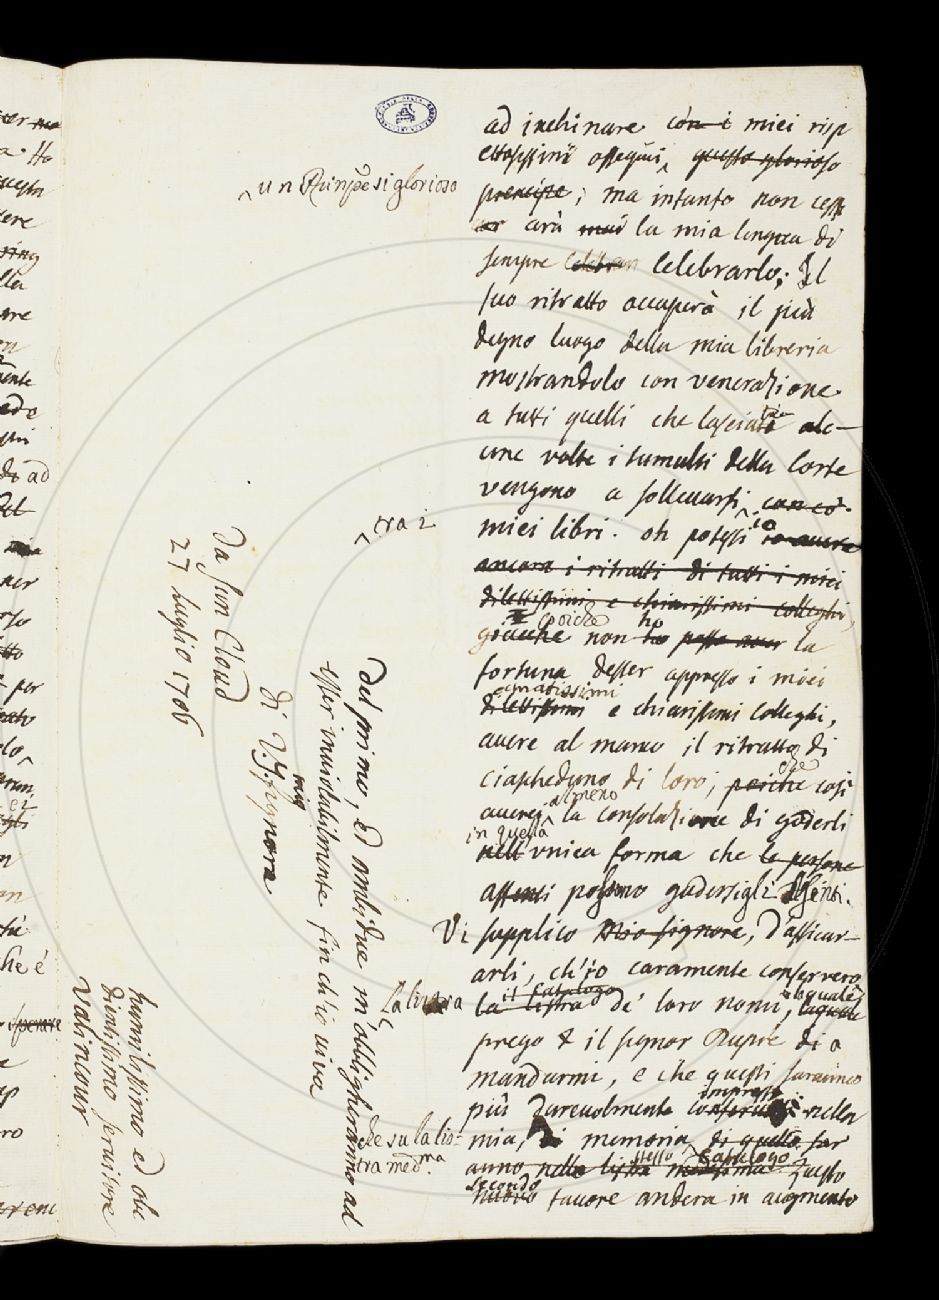 ad inchinare con i miei risp
ettosissimi ossequi, questo glorioso
prencipe; ma intanto non cess
ar arà mai la mia lengua di
sempre celebrar Celebrarlo; Il
suo ritratto occuperà il più
degno luogo della mia libreria
mostrandolo con venerazione
a tutti quelli che lasciate alc-
une volte i tumulti della Corte
vengono a sollevarsi con cò
miei libri. oh potessi io avere
ancora i ritratti di tutti i miei
dilettissimi e chiarissimi colleghi,
poiche ho
giacche non ho posso aver la
fortuna desser appresso i miei
amatissimi
dilettissimi e chiarissimi Colleghi,
avere al manco il ritratto di
ciascheduno di loro; perche così
che
averei la consolazione di goderli
almeno
in quella
nell' unica forma che le persone
assenti possono godersigli assenti.
Vi supplico Mio signore, d'assicur-
arli, ch'io caramente conserverò
il Catalogo
la listra de' loro nomi, laquale
ilquale
prego il signor Dupré di
mandarmi, e che questi saranno
impressi
più durevolmente conservati nella
mia, di memoria, di quello sar
stesso Catalogo
anno nella listra medesima. Questo
secondo
nuovo favore andera in augmento
un Prinpe si glorioso
tra i
La listra
che su la lis=
tra med.ma
del primo, ed ambidue m'obbligheranno ad
esser inviolabilmente fin ch'io viva
di V.S. mia signora
Da San Cloud
27 luglio 1706
humilissimo ed obe
dientissimo servitore
Valincour